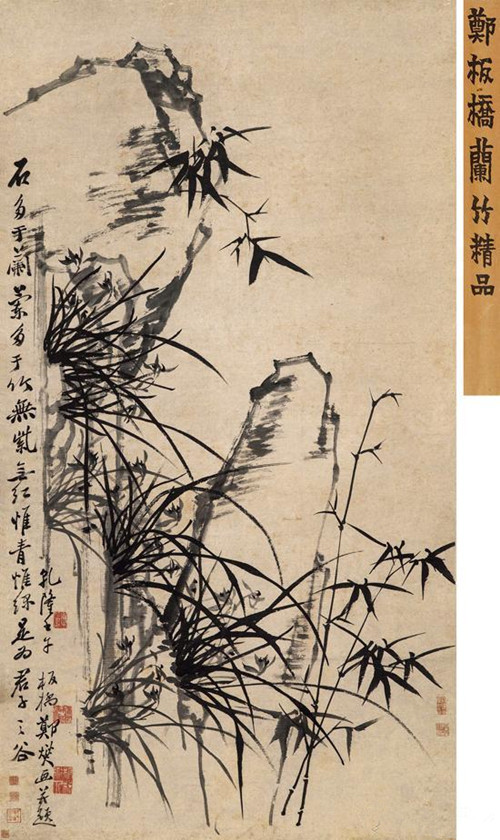 鄭板橋蘭竹精品
石多于蘭蘭多于竹無紫無紅惟青惟綠是為君子之谷
乾隆壬午
板橋鄭燮畫并題